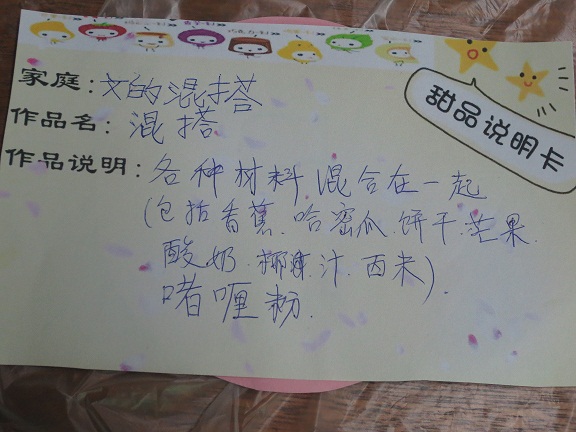 甜品说明卡
家庭:文的混搭
作品名:混搭
作品说明:各种材料混合在一起
(包括香蕉.哈密瓜.饼干.芒果.
酸奶.椰浆.汁.西米).
啫喱粉.